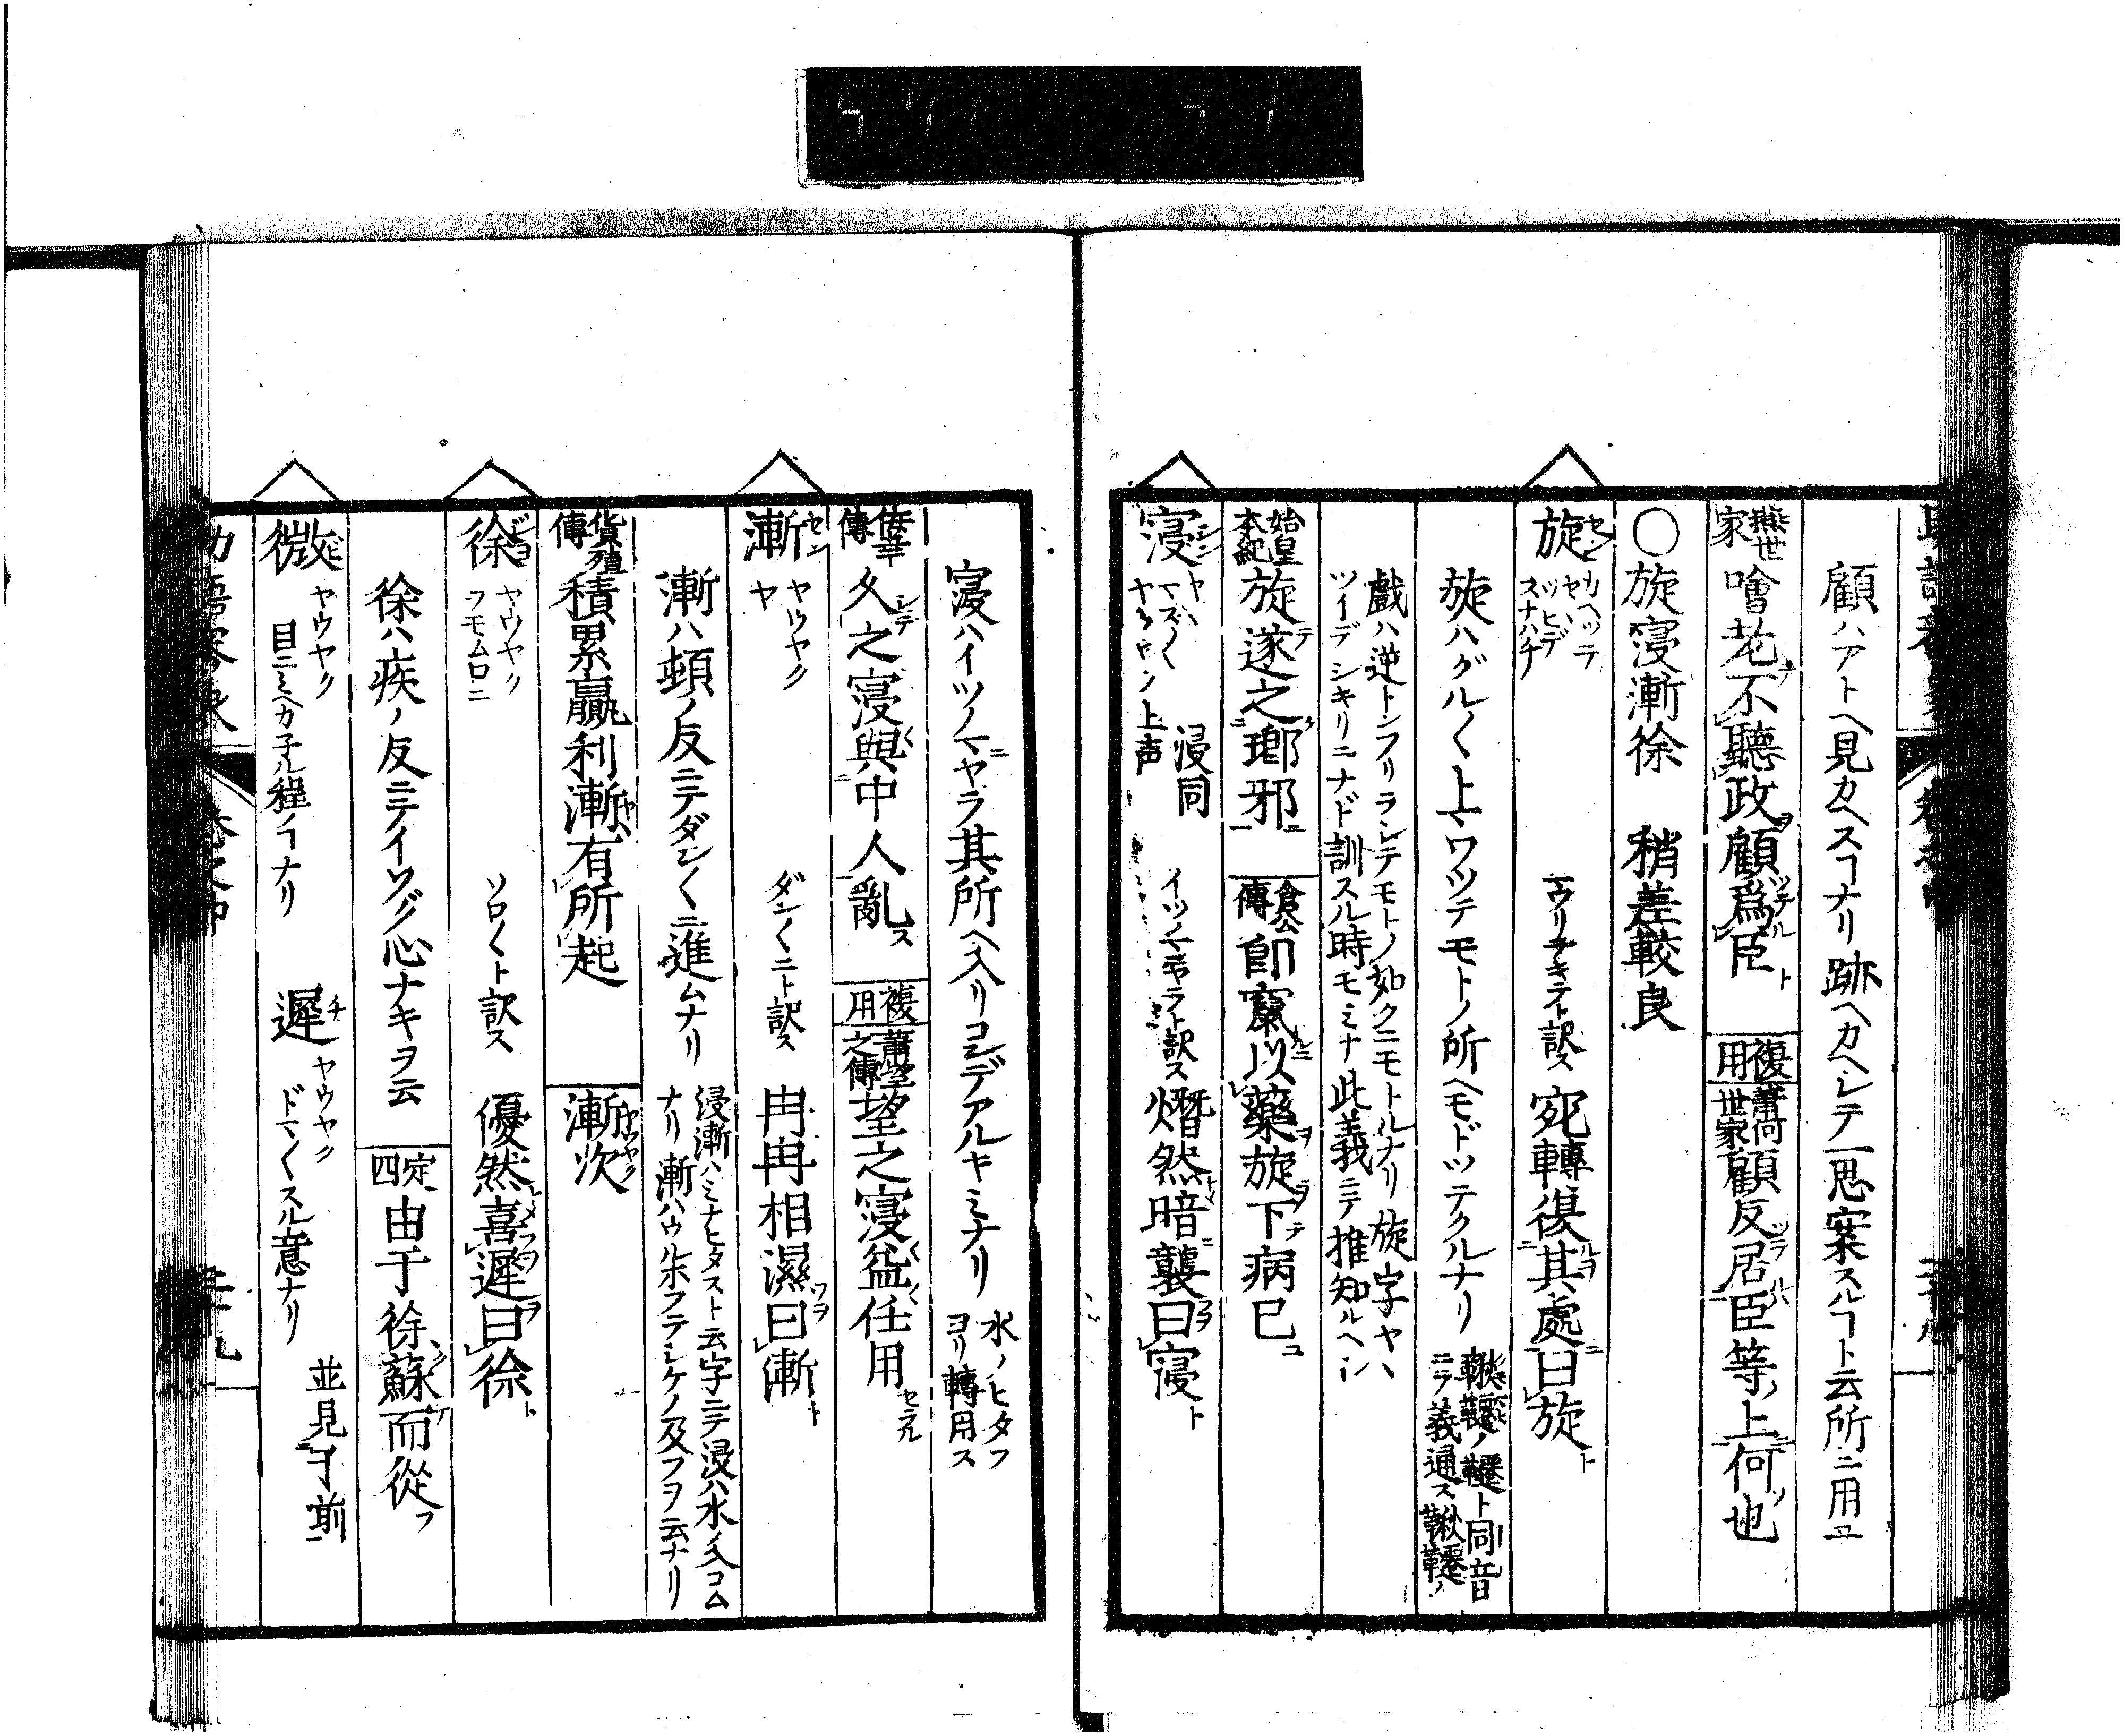 顧ハアトヘ見カヘスヿナリ跡ヘカヘレテ一思案スルヿト云所ニ用ユ
燕世家 噲老不聽政顧爲臣 複用 蕭何世家 顧反居臣等ノ上何也
〇旋寖漸徐 稍差較良
旋 セン カヘツテ ツヒデ スナハチ 訳ス 宛轉復其處曰旋
旋ハグル〱上マワツテモトノ所ヘモドツテクルナリ 鞦韆ノ韆ト同音ニヲ義通ス鞦韆ノ
戲ハ逆トンフリラレテモトノ如クニモトルナリ旋字ヤハ
ツイデシキリニナド訓スル時モミナ此義ニテ推知ルヘシ
始皇本紀 旋遂之瑯邪 倉公傳 即竄以藥旋下病已
寖 シン 上声 浸同 訳ス 熸然暗襲曰寖
寖ハイツノマニヤラ其所ヘ入リコンデアルキミナリ 水ノヒタフヨリ轉用ス
傳 久之寖與中人亂 複用 蕭望之傳 望之寖益任用
漸 セン ヤウヤク ヤヤ ダン〱ニト訳ス 冉冉相濕曰漸
漸ハ頓ノ反ニテダン〱ニ進ムナリ 浸漸ハミナヒタスト云字ニテ浸ハ水ノ入コムナリ漸ハウルホフテシケノ及フヲ云ナリ
貨殖傳 積累贏利漸有所起 漸次
徐 ジヨ ヤウヤク ヲモムロニ ソロ〱ト訳ス 優然喜遲曰徐
徐ハ疾ノ反ニテイソグ心ナキヲ云 定四 由于徐蘇而從フ
微 ビ ヤウヤク 目ニミヘカ子ル程ノヿナリ 遲 チ ヤウヤク ドマ〱スル意ナリ 並見于前